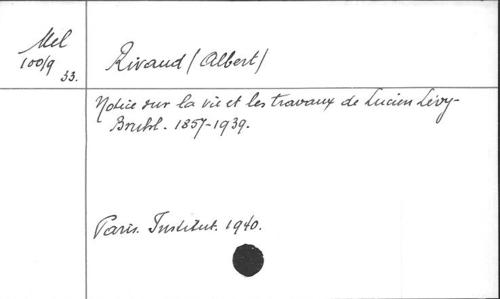 Mel
100/9
33.
Rivaud (Albert)
Notice sur la vie et les travaux de Lucien Lévy-
Bruhl. 1857-1939.
Paris. Institut. 1940.